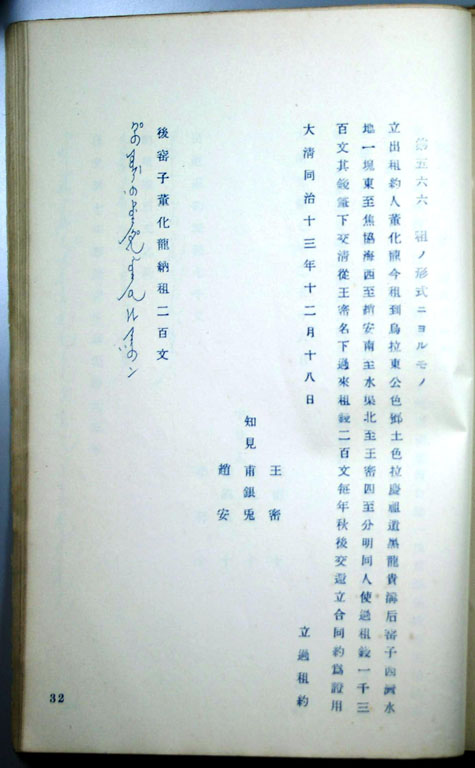 第五六六 租ノ形式ニヨルモノ
立出租約人董化龍今租到烏拉東公色鄉土色拉慶祖道黑龍貴溝后窰子西水
地一塊東至焦協海西至趙安南至水渠北至王密四至分明同人使過租錢一千三
百文其錢筆下交清從王密名下過來租錢二百文每年秋後交還立合同約爲證用
大清同治十三年十二月十八日 立過租約
王密
知見 甫銀兎
趙安
後窰子董化龍納租二百文
32